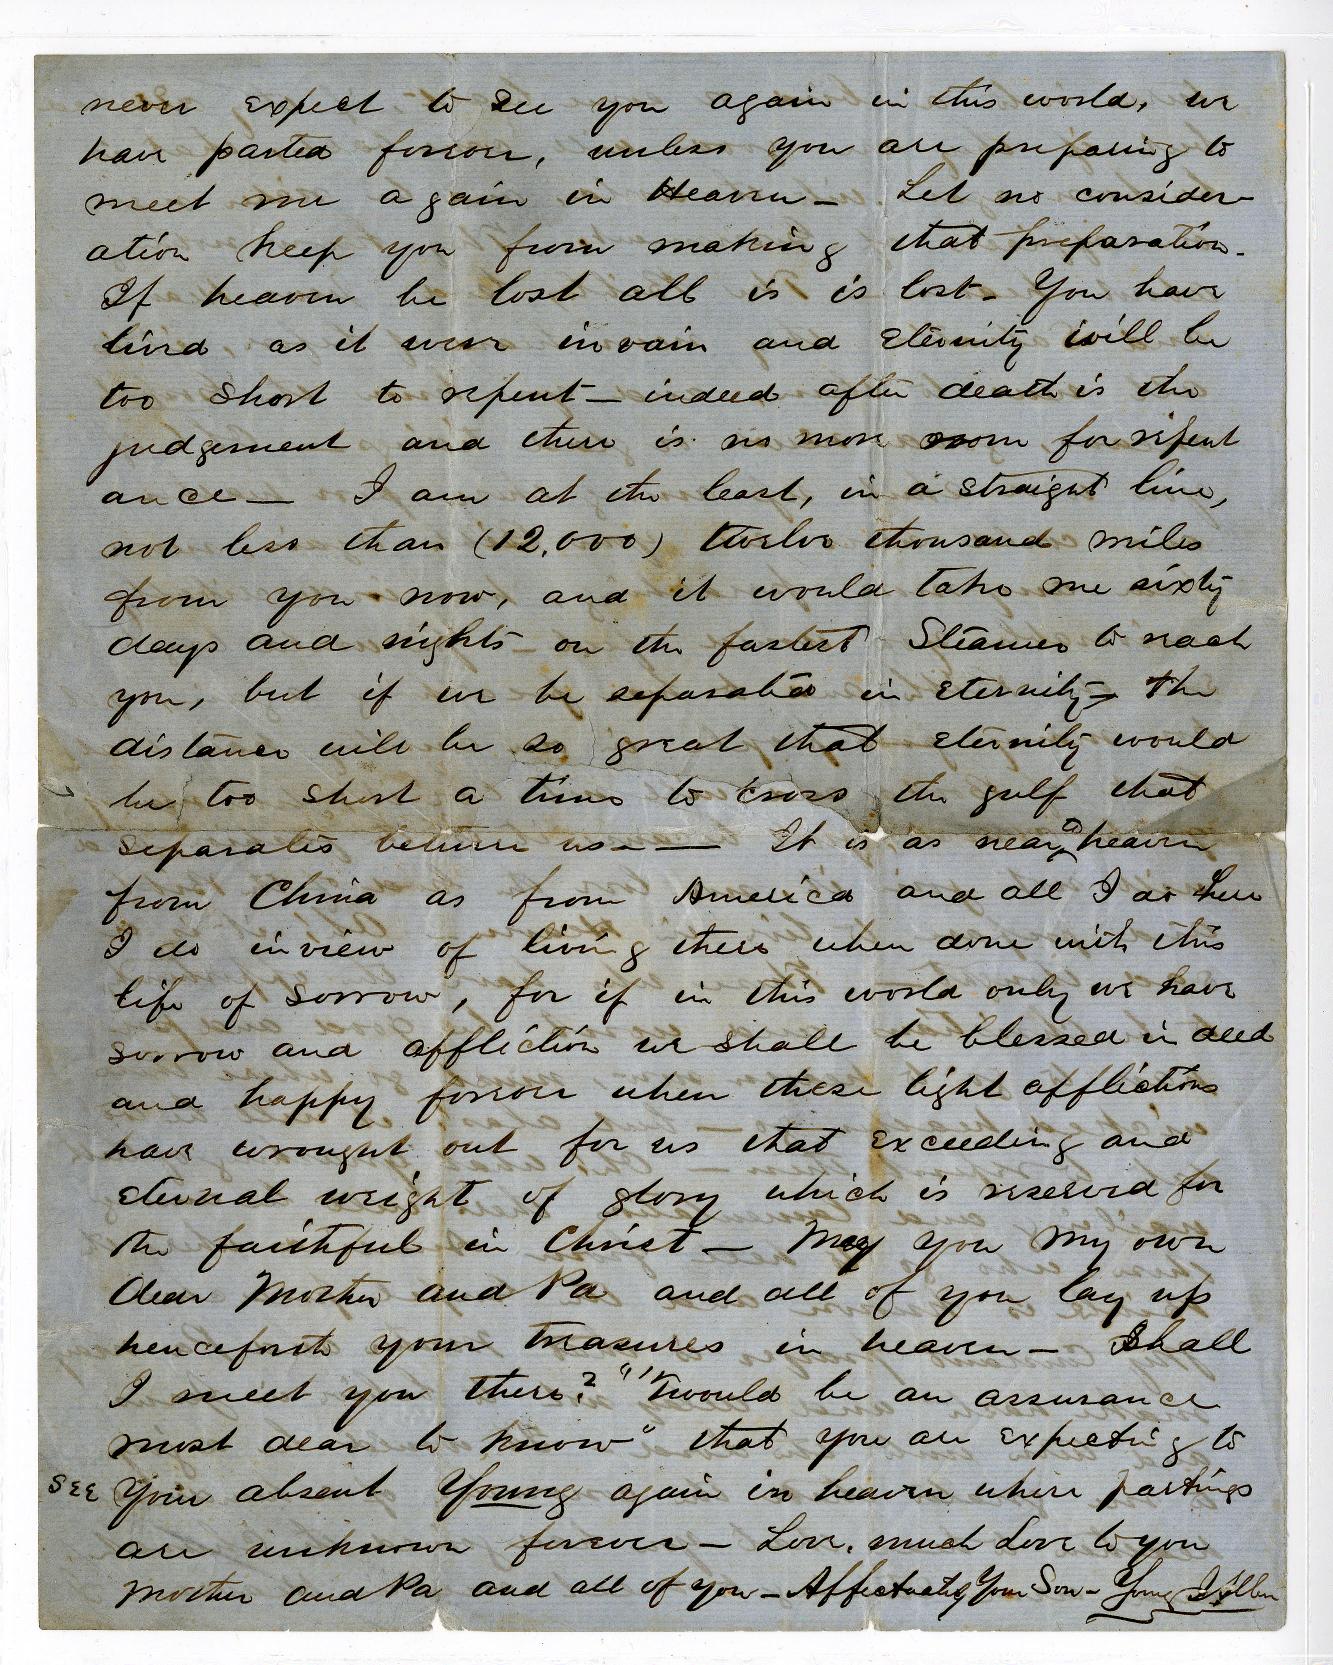 never expect to see you again in this world, we
have parted forever, unless you are preparing to
meet me again in Heaven – Let no consider-
ation keep you from making that preparation.
If heaven be lost all is is lost. You have
lived as it were in vain and Eternity will be
too short to repent – indeed after death is the
judgement and there is no more room for repent
ance – I am at the least, in a straight line,
not less than (12,000) twelve thousand miles
from you now, and it would take me sixty
days and nights on the fastest Steamer to reach
you, but if we be separated in Eternity – the
distance will be so great that eternity would
be too short a time to cross the gulf that
separates between us – – It is as near a heaven
from China as from America and all I do here
I do in view of living there when done with this
life of sorrow, for if in this world only we have
sorrow and affliction we shall be blessed in deed
and happy forever when these light afflictions
have wrought out for us that exceeding and
eternal weight of glory which is reserved for
the faithful in Christ – May you my own
dear Mother and Pa and all of you lay up
henceforth your treasures in heaven – Shall
I meet you there? "'Twould be an assurance
most dear to know" that you are expecting to
see your absent Young again in heaven where partings
are unknown forever – Love, much Love to you
Mother and Pa and all of you – Affectionately Your Son – Young J. Allen